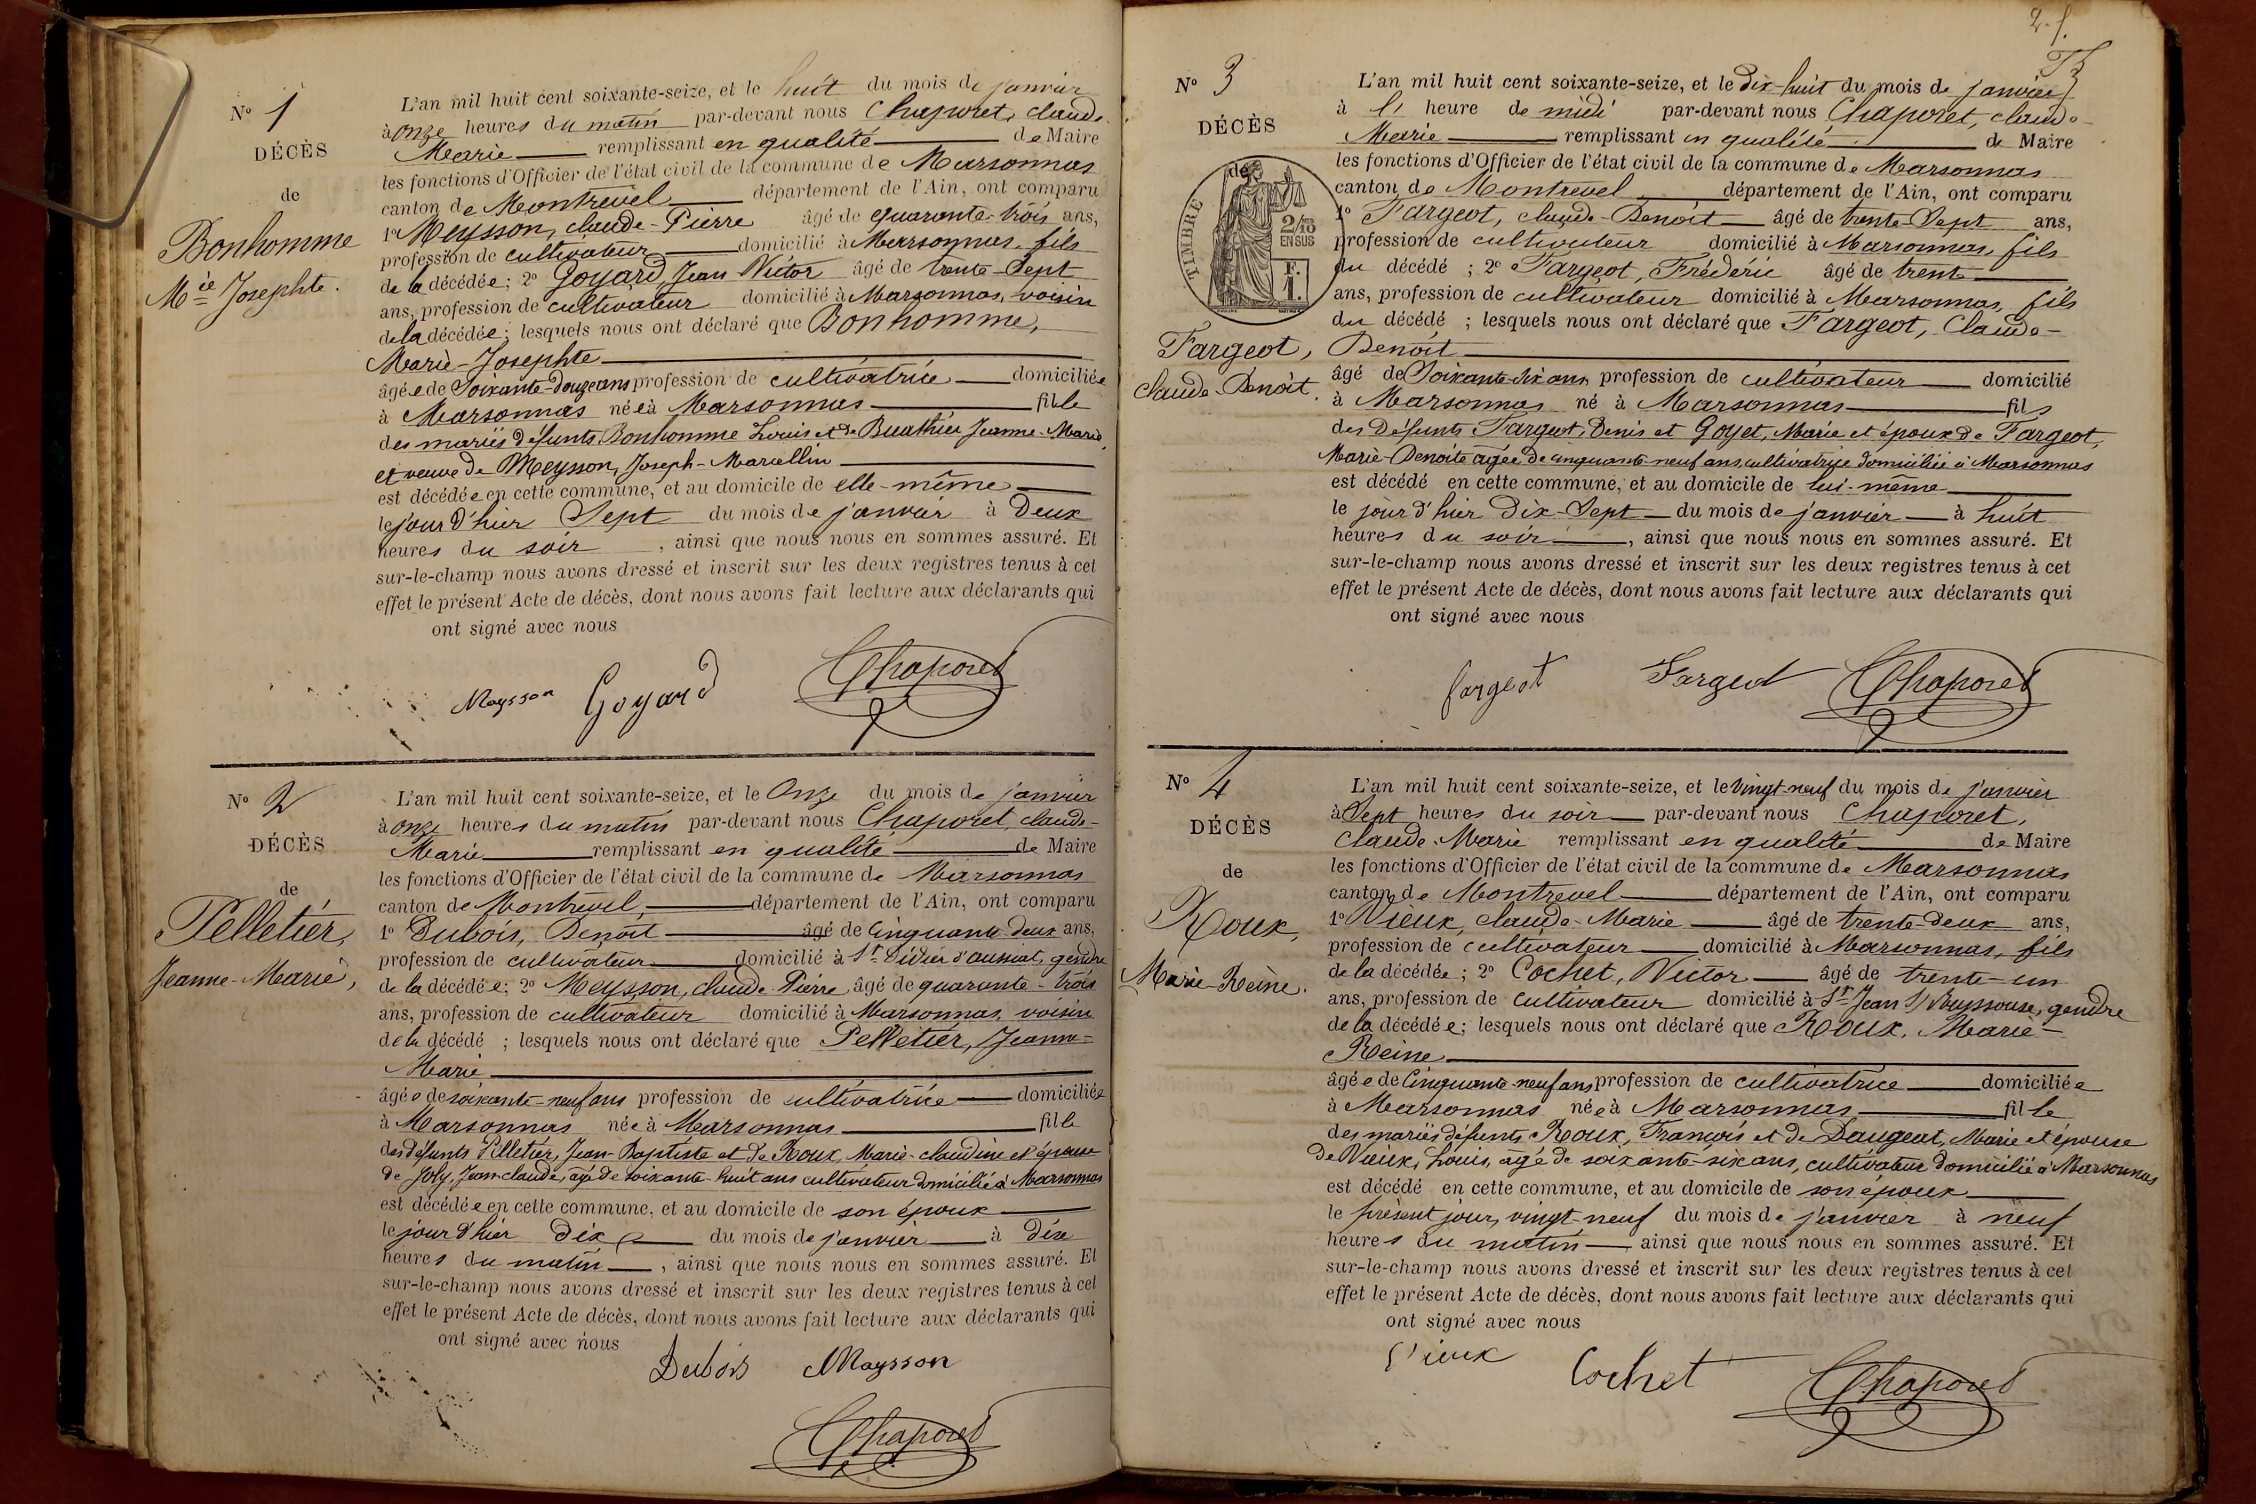 N° 1
DÉCÈS
de
Bonhomme
Mie Josephte.
L'an mil huit cent soixante-seize, et le huit du mois de janvier
à onze heures du matin par-devant nous Chaporet, claude-
Marie remplissant en qualité de Maire
les fonctions d'Officier de l'état civil de la commune de Marsonnas
canton de Montrevel département de l'Ain, ont comparu
1° Meysson, claude-Pierre âgé de quarante-trois ans,
profession de cultivateur domicilié à Marsonnas, fils
de la décédée; 2° Goyard Jean Victor âgé de trente-Sept
ans, profession de cultivateur domicilié à Marsonnas, voisin
de la décédée; lesquels nous ont déclaré que Bonhomme,
Marie-Josephte
âgée de Soixante-douze ans profession de cultivatrice domiciliée
à Marsonnas née à Marsonnas fille
des mariés défunts Bonhomme Louis et de Buathier Jeanne-Marie,
et veuve de Meysson, Joseph-Marcellin
est décédée en cette commune, et au domicile de elle-même
le jour d'hier Sept du mois de janvier à Deux
heures du soir, ainsi que nous nous en sommes assuré. Et
sur-le-champ nous avons dressé et inscrit sur les deux registres tenus à cet
effet le présent Acte de décès, dont nous avons fait lecture aux déclarants qui
ont signé avec nous
Maysson Goyard Chaporet
N° 2
DÉCÈS
de
Pelletier,
Jeanne-Marie,
L'an mil huit cent soixante-seize, et le Onze du mois de janvier
à onze heures du matin par-devant nous Chaporet, claude-
Marie remplissant en qualité de Maire
les fonctions d'Officier de l'état civil de la commune de Marsonnas
canton de Montrevel, département de l'Ain, ont comparu
1° Dubois, Benoit âgé de Cinquante deux ans,
profession de cultivateur domicilié à St Didier d'aussiat, gendre
de la décédée; 2° Meysson, claude-Pierre âgé de quarante-trois
ans, profession de cultivateur domicilié à Marsonnas, voisin
de la décédé ; lesquels nous ont déclaré que Pelletier, Jeanne-
Marie
âgée de soixante-neuf ans profession de cultivatrice domiciliée
à Marsonnas née à Marsonnas fille
des défunts Pelletier, Jean-Baptiste et de Roux, Marie-claudine et épouse
de Joly, Jean-claude, âgé de soixante-huit ans cultivateur domicilié à Marsonnas
est décédée en cette commune, et au domicile de son époux
le jour d'hier dix du mois de janvier à dix
heures du matin, ainsi que nous nous en sommes assuré. Et
sur-le-champ nous avons dressé et inscrit sur les deux registres tenus à cet
effet le présent Acte de décès, dont nous avons fait lecture aux déclarants qui
ont signé avec nous
Dubois Maysson
Chaporet
2. f.
N° 3
DÉCÈS
de
TIMBRE
2/10
EN SUS
F.
1.
Fargeot,
claude-Benoît.
L'an mil huit cent soixante-seize, et le dix-huit du mois de janvier
à l' heure de midi par-devant nous Chaporet, claude-
Marie remplissant en qualité de Maire
les fonctions d'Officier de l'état civil de la commune de Marsonnas
canton de Montrevel département de l'Ain, ont comparu
1° Fargeot, claude-Benoît âgé de trente-Sept ans,
profession de cultivateur domicilié à Marsonnas, fils
du décédé ; 2° Fargeot, Fréderic âgé de trente
ans, profession de cultivateur domicilié à Marsonnas, fils
du décédé ; lesquels nous ont déclaré que Fargeot, Claude-
Benoît
âgé de Soixante-dix ans profession de cultivateur domicilié
à Marsonnas né à Marsonnas fils
des Défunts Fargeot, Denis et Goyet, Marie et époux de Fargeot,
Marie-Benoite âgée de cinquante-neuf ans, cultivatrice domiciliée à Marsonnas
est décédé en cette commune, et au domicile de lui-même
le jour d'hier Dix-Sept du mois de janvier à huit
heures du soir, ainsi que nous nous en sommes assuré. Et
sur-le-champ nous avons dressé et inscrit sur les deux registres tenus à cet
effet le présent Acte de décès, dont nous avons fait lecture aux déclarants qui
ont signé avec nous
fargeot Fargeot Chaporet
N° 4
DÉCÈS
de
Roux,
Marie-Reine.
L'an mil huit cent soixante-seize, et le vingt-neuf du mois de janvier
à Sept heures du soir par-devant nous Chaporet,
claude-Marie remplissant en qualité de Maire
les fonctions d'Officier de l'état civil de la commune de Marsonnas
canton de Montrevel département de l'Ain, ont comparu
1° Vieux, claude-Marie âgé de trente-deux ans,
profession de cultivateur domicilié à Marsonnas, fils
de la décédée; 2° Cochet, Victor âgé de trente-un
ans, profession de cultivateur domicilié à St Jean s/ Reyssouse, gendre
de la décédée; lesquels nous ont déclaré que Roux, Marie-
Reine
âgée de Cinquante-neuf ans profession de cultivatrice domiciliée
à Marsonnas née à Marsonnas fille
des mariés défunts Roux, François et de Daugeat, Marie et épouse
de Vieux, Louis, âgé de soixante-six ans, cultivateur domicilié à Marsonnas
est décédé en cette commune, et au domicile de son époux
le présent jour, vingt-neuf du mois de janvier à neuf
heures du matin ainsi que nous nous en sommes assuré. Et
sur-le-champ nous avons dressé et inscrit sur les deux registres tenus à cet
effet le présent Acte de décès, dont nous avons fait lecture aux déclarants qui
ont signé avec nous
Vieux Cochet Chaporet